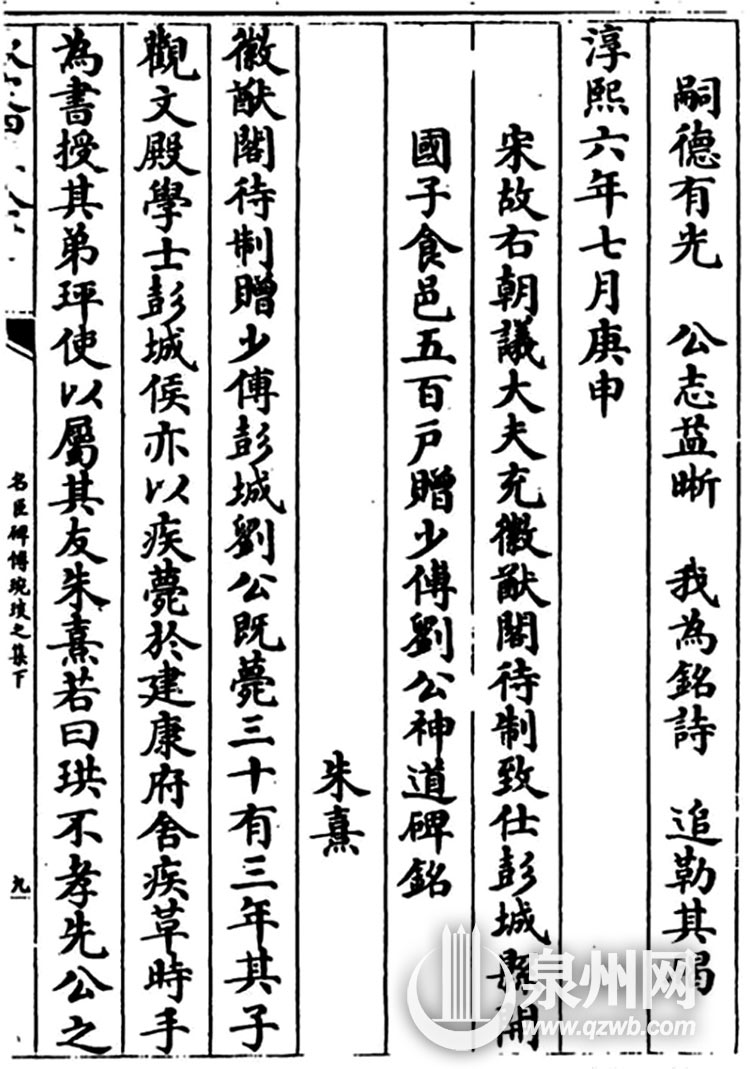 嗣德有光 公志益晰 我為銘詩 追勒其碣
淳熙六年七月庚申
宋故右朝議大夫充徽猷閣待制致仕彭城縣開
國子食邑五百戶贈少傅劉公神道碑銘
朱熹
徽猷閣待制贈少傅彭城劉公既薨三十有三年其子
觀文殿學士彭城侯亦以疾薨於建康府舍疾草時手
為書授其弟玶使以屬其友朱熹若曰珙不孝先公之
名臣碑傳琬琰之集下
九
泉州网
www.qzwb.com